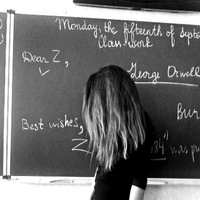 Monday, the fifteenth of Septe
Class work
Dear Z,
George Orwell
Bur
Best wishes,
Z
84" was pu